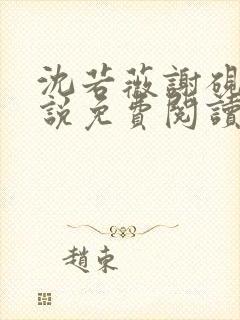 沈若薇謝硯
說免費閱讀
趙東